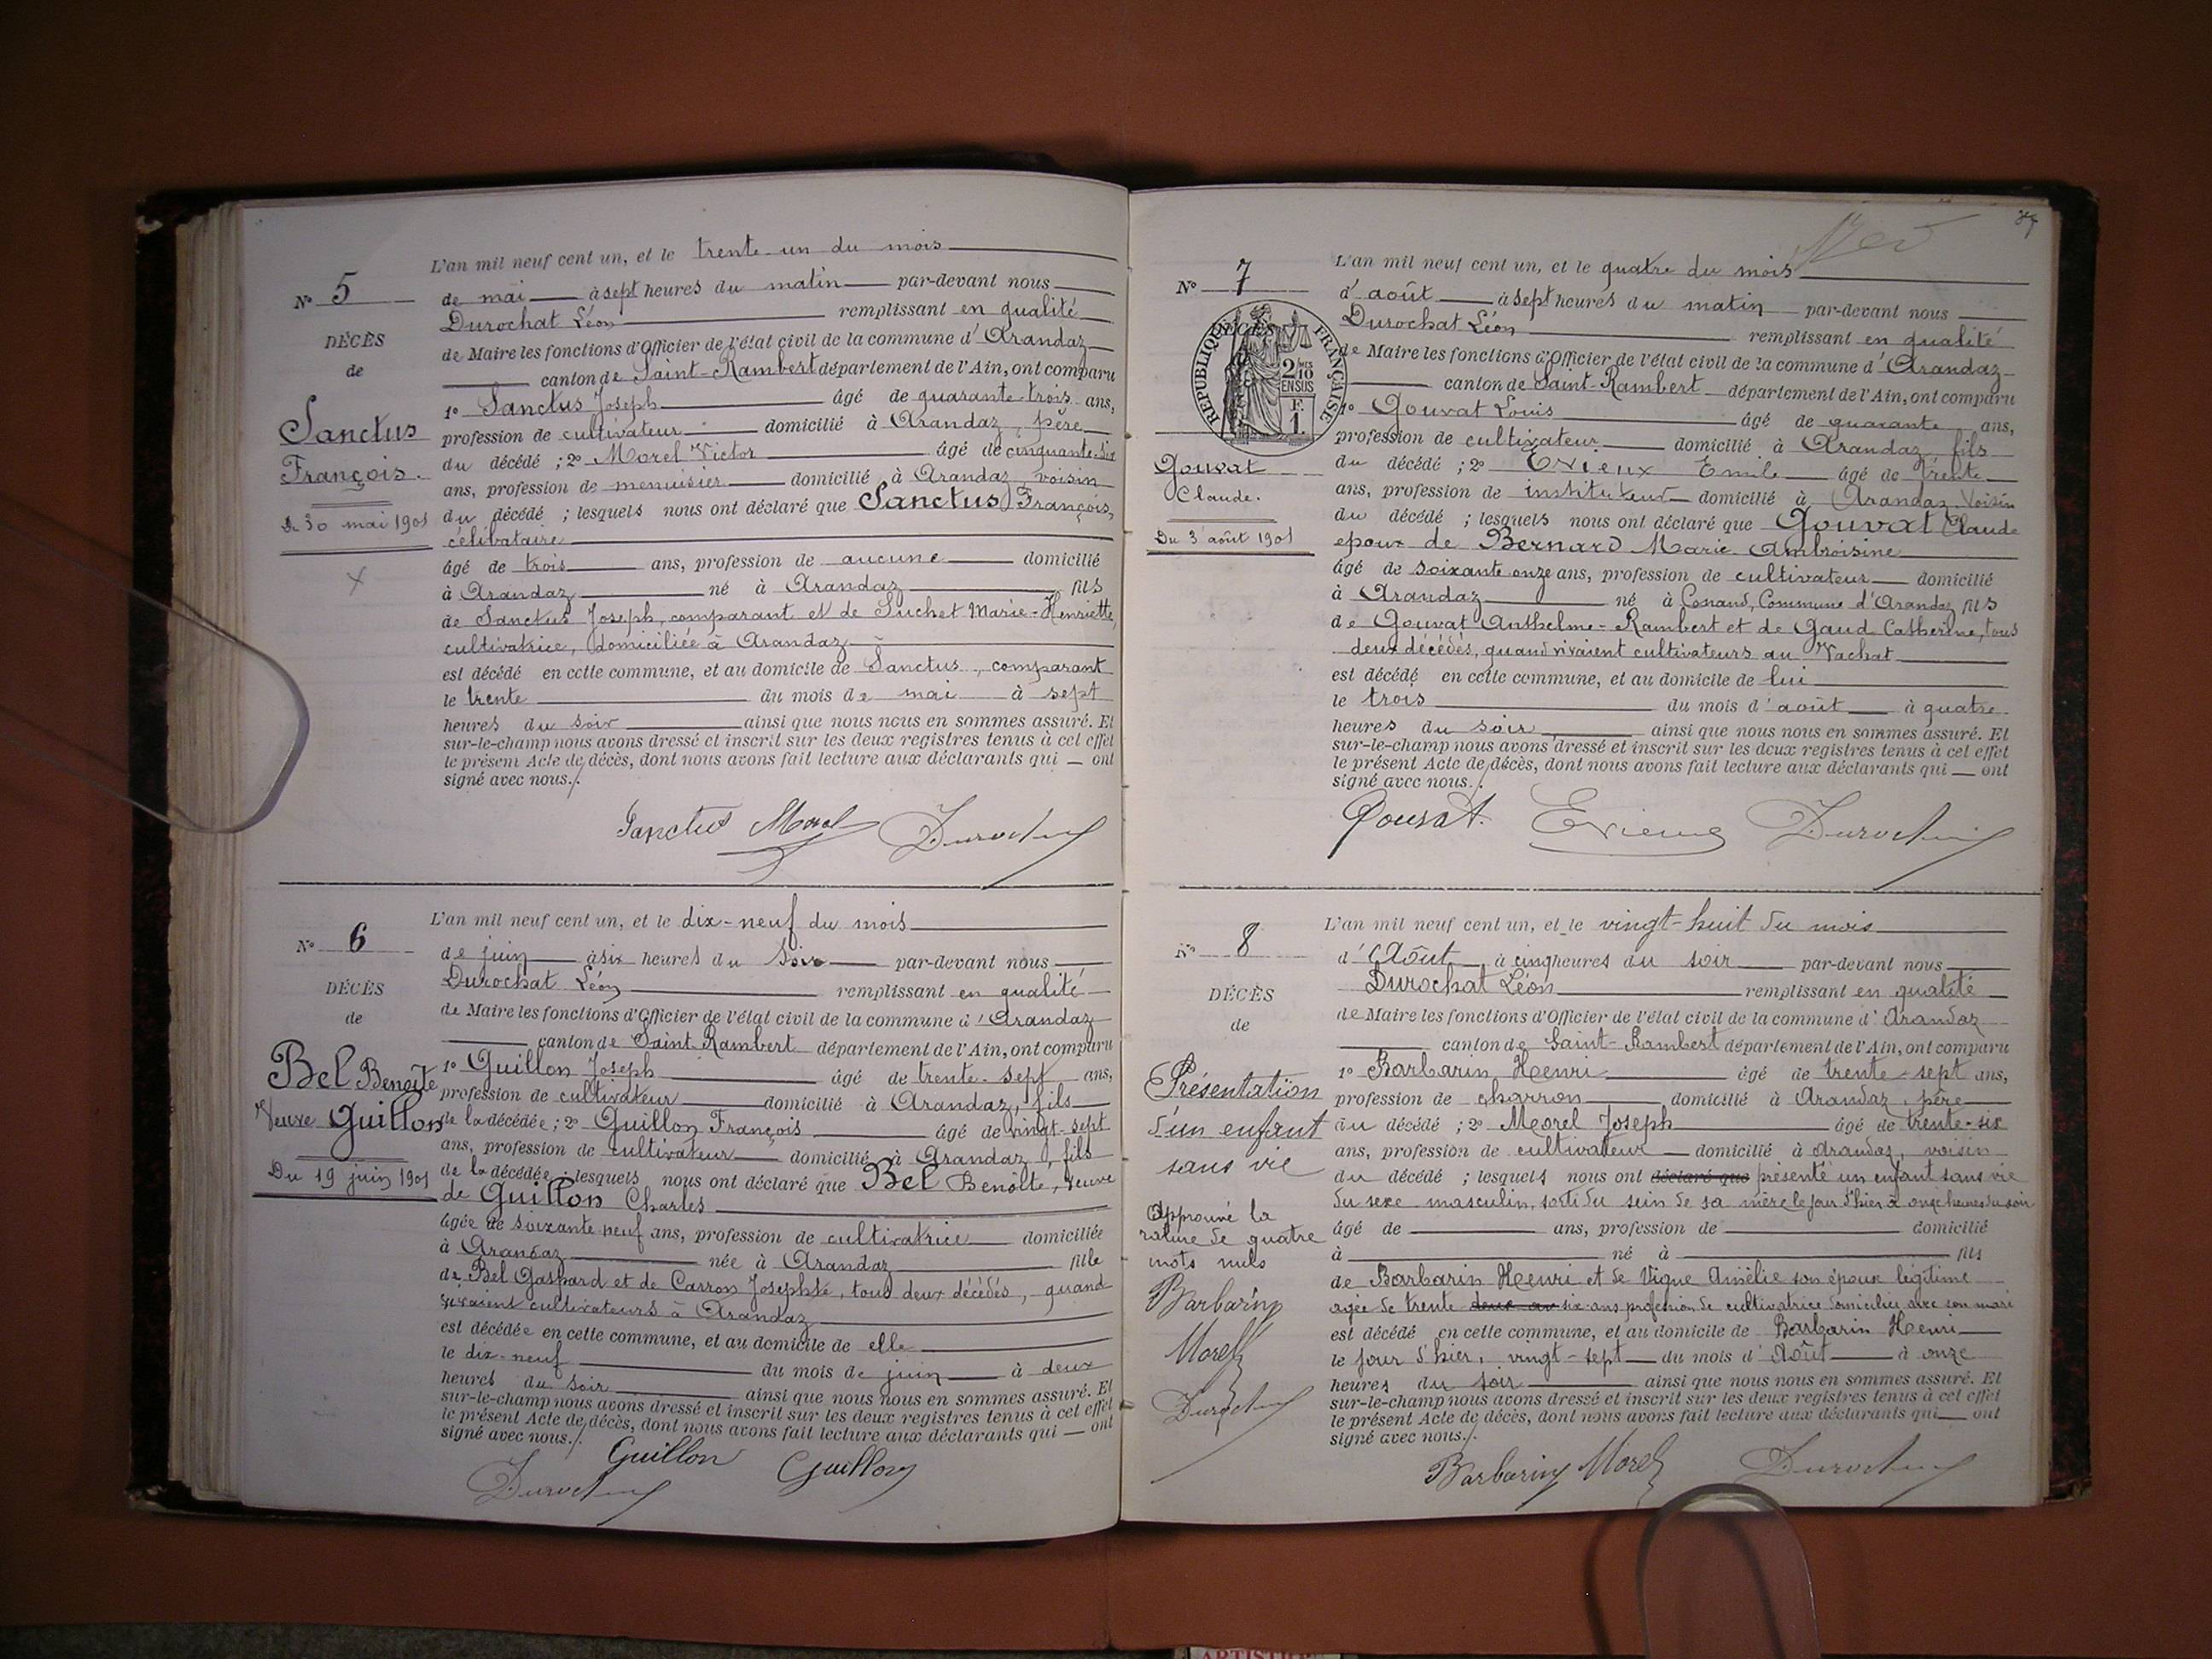 L'an mil neuf cent un, et le trente-un du mois
N° 5
de mai à sept heures du matin par-devant nous
Durochat Léon remplissant en qualité
DÉCÈS
de Maire les fonctions d'Officier de l'état civil de la commune d'Arandaz
de
canton de Saint-Rambert département de l'Ain, ont comparu
1° Sanctus Joseph âgé de quarante-trois ans,
Sanctus
profession de cultivateur domicilié à Arandaz, père
François.
du décédé ; 2° Morel Victor âgé de cinquante-six
ans, profession de menuisier domicilié à Arandaz, voisin
Du 30 mai 1901
du décédé ; lesquels nous ont déclaré que Sanctus François,
célibataire
âgé de trois ans, profession de aucune domicilié
à Arandaz né à Arandaz fils
de Sanctus Joseph, comparant et de Suchet Marie-Henriette,
cultivatrice, domiciliée à Arandaz
est décédé en cette commune, et au domicile de Sanctus, comparant
le trente du mois de mai à sept
heures du soir ainsi que nous nous en sommes assuré. Et
sur-le-champ nous avons dressé et inscrit sur les deux registres tenus à cet effet
le présent Acte de décès, dont nous avons fait lecture aux déclarants qui ont
signé avec nous./.
Sanctus Morel Durochat
L'an mil neuf cent un, et le dix-neuf du mois
N° 6
de juin à six heures du soir par-devant nous
Durochat Léon remplissant en qualité
DÉCÈS
de Maire les fonctions d'Officier de l'état civil de la commune d'Arandaz
de
canton de Saint-Rambert département de l'Ain, ont comparu
1° Guillon Joseph âgé de trente-sept ans,
Bel Benoîte
profession de cultivateur domicilié à Arandaz, fils
Veuve Guillon
de la décédée ; 2° Guillon François âgé de vingt-sept
ans, profession de cultivateur domicilié à Arandaz, fils
Du 19 juin 1901
de la décédée ; lesquels nous ont déclaré que Bel Benoîte, veuve
de Guillon Charles
âgée de soixante neuf ans, profession de cultivatrice domiciliée
à Arandaz née à Arandaz fille
de Bel Gaspard et de Carron Josephte, tous deux décédés, quand
vivaient cultivateurs à Arandaz
est décédée en cette commune, et au domicile de elle
le dix-neuf du mois de juin à deux
heures du soir ainsi que nous nous en sommes assuré. Et
sur-le-champ nous avons dressé et inscrit sur les deux registres tenus à cet effet
le présent Acte de décès, dont nous avons fait lecture aux déclarants qui ont
signé avec nous./.
Guillon Guillon
Durochat
L'an mil neuf cent un, et le quatre du mois
N° 7
d'août à sept heures du matin par-devant nous
Durochat Léon remplissant en qualité
DÉCÈS
RÉPUBLIQUE FRANÇAISE
2/10 EN SUS
F. 1
de Maire les fonctions d'Officier de l'état civil de la commune d'Arandaz
canton de Saint-Rambert département de l'Ain, ont comparu
1° Gouvat Louis âgé de quarante ans,
profession de cultivateur domicilié à Arandaz, fils
Gouvat
du décédé ; 2° Evieux Emile âgé de trente
Claude.
ans, profession de instituteur domicilié à Arandaz, voisin
du décédé ; lesquels nous ont déclaré que Gouvat Claude
Du 3 août 1901
époux de Bernard Marie Ambroisine
âgé de soixante onze ans, profession de cultivateur domicilié
à Arandaz né à Conand, Commune d'Arandaz fils
de Gouvat Anthelme-Rambert et de Gaud Catherine, tous
deux décédés, quand vivaient cultivateurs au Vachat
est décédé en cette commune, et au domicile de lui
le trois du mois d'août à quatre
heures du soir ainsi que nous nous en sommes assuré. Et
sur-le-champ nous avons dressé et inscrit sur les deux registres tenus à cet effet
le présent Acte de décès, dont nous avons fait lecture aux déclarants qui ont
signé avec nous./.
Gouvat. Evieux Durochat
L'an mil neuf cent un, et le vingt-huit du mois
N° 8
d'Août à cinq heures du soir par-devant nous
Durochat Léon remplissant en qualité
DÉCÈS
de Maire les fonctions d'Officier de l'état civil de la commune d'Arandaz
de
canton de Saint-Rambert département de l'Ain, ont comparu
1° Barbarin Henri âgé de trente-sept ans,
Présentation
profession de charron domicilié à Arandaz, père
d'un enfant
du décédé ; 2° Morel Joseph âgé de trente-six
sans vie
ans, profession de cultivateur domicilié à Arandaz, voisin
du décédé ; lesquels nous ont déclaré que présenté un enfant sans vie
du sexe masculin, sorti du sein de sa mère le jour d'hier à onze heures du soir
Approuvé la
rature de quatre
mots nuls
Barbarin
Morel
Durochat
âgé de ans, profession de domicilié
à né à fils
de Barbarin Henri et de Vigne Amélie son épouse légitime
agée de trente six ans profession de cultivatrice domiciliée avec son mari
est décédé en cette commune, et au domicile de Barbarin Henri
le jour d'hier, vingt-sept du mois d'Août à onze
heures du soir ainsi que nous nous en sommes assuré. Et
sur-le-champ nous avons dressé et inscrit sur les deux registres tenus à cet effet
le présent Acte de décès, dont nous avons fait lecture aux déclarants qui ont
signé avec nous./.
Barbarin Morel Durochat